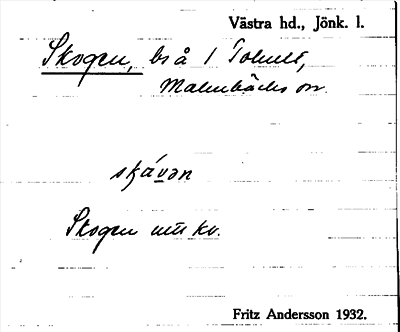 Västra hd., Jönk. l.
Skogen, bs å 1 Tohult,
Malmbäcks sn.
skåvən
Skogen utt kv.
Fritz Andersson 1932.